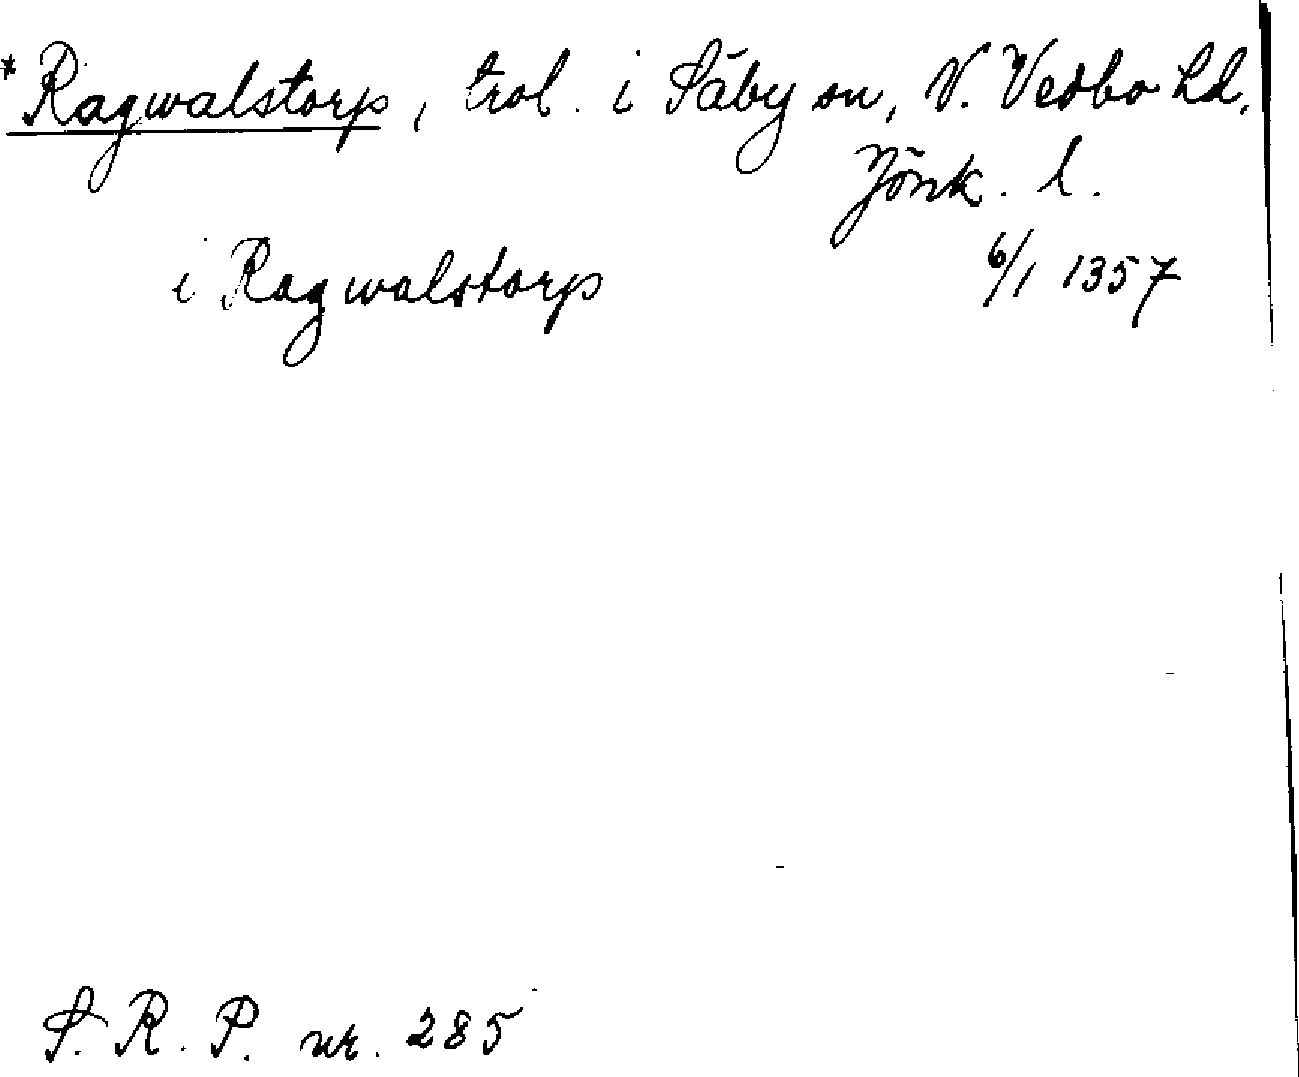 *Ragwalstorp, trol. i Säby sn, N. Vedbo hd,
Jönk. l.
i Ragwalstorp 6/1 1357
S. R. P. nr. 285